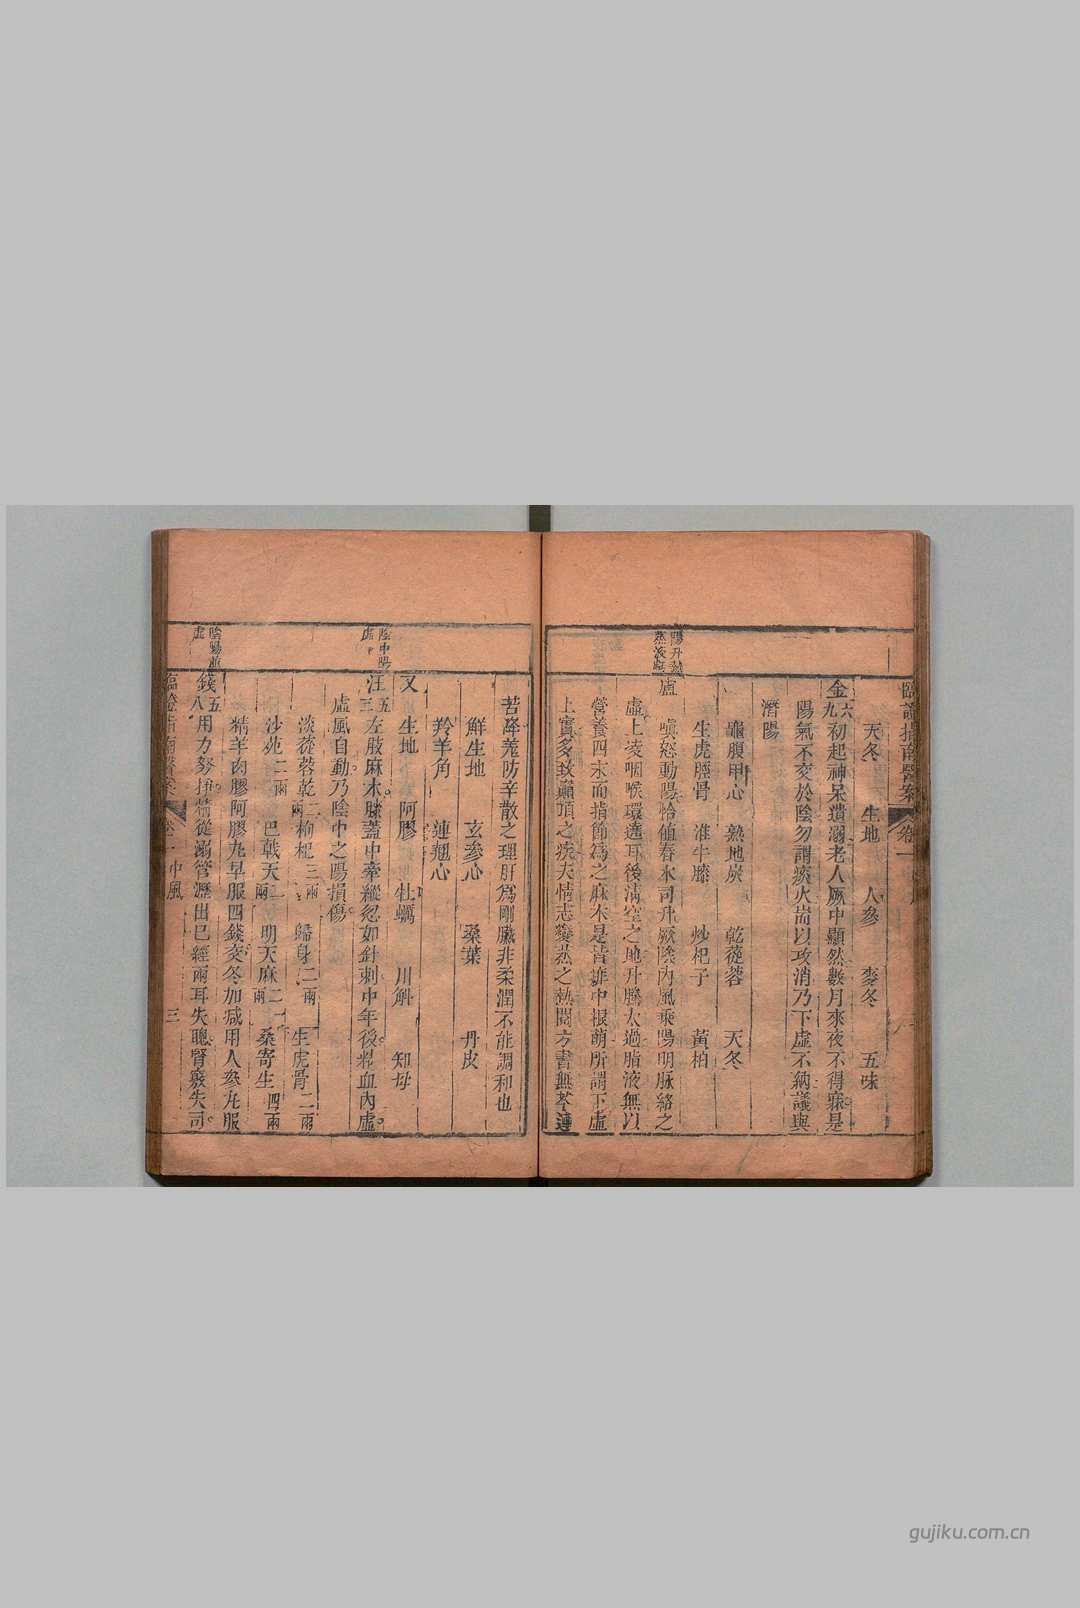 臨證指南醫案 卷一
天冬 生地 人參 麥冬 五味
金 六九 初起神呆遺溺老人厥中顯然數月來夜不得寐是
陽氣不交於陰勿謂痰火耑以攻消乃下虛不納議與
潛陽
龜腹甲心 熟地炭 乾蓯蓉 天冬
生虎脛骨 淮牛膝 炒杞子 黃柏
陽升熱蒸液虧
盧 嗔怒動陽恰值春木司升厥陰內風乘陽明脈絡之
虛上凌咽喉環遶耳後清空之地升騰太過脂液無以
營養四末而指節為之麻木是皆痱中根萌所謂下虛
上實多致巔頂之疾夫情志變蒸之熱閱方書無芩連
苦降羌防辛散之理肝為剛臟非柔潤不能調和也
鮮生地 玄參心 桑葉 丹皮
羚羊角 連翹心
又 生地 阿膠 牡蠣 川斛 知母
陰中陽虛
汪 五三 左肢麻木膝蓋中牽縱忽如針刺中年後精血內虛
虛風自動乃陰中之陽損傷
淡蓯蓉乾二兩 枸杞三兩 歸身二兩 生虎骨二兩
沙苑二兩 巴戟天二兩 明天麻二兩 桑寄生四兩
精羊肉膠阿膠丸早服四錢交冬加減用人參丸服
陰陽並虛
錢 五八 用力努掙精從溺管瀝出已經兩耳失聰腎竅失司
臨證指南醫案 卷一 中風 三